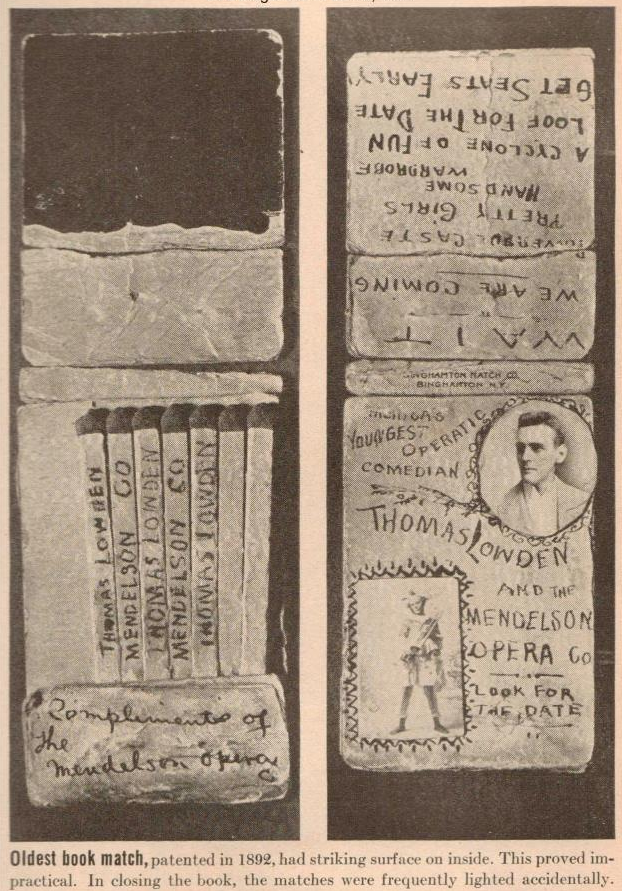 THOMAS LOWDEN
MENDELSON CO
THOMAS LOWDEN
MENDELSON CO
THOMAS LOWDEN
Compliments of
the
Mendelson Opera
Co
WAIT
WE ARE COMING
POWERFUL CASTE
PRETTY GIRLS
HANDSOME
WARDROBE
A CYCLONE OF FUN
LOOK FOR THE DATE
GET SEATS EARLY
BINGHAMTON MATCH CO.
BINGHAMTON N.Y.
AMERICA'S
YOUNGEST
OPERATIC
COMEDIAN
THOMAS LOWDEN
AND THE
MENDELSON
OPERA CO
LOOK FOR
THE DATE
Oldest book match, patented in 1892, had striking surface on inside. This proved im-
practical. In closing the book, the matches were frequently lighted accidentally.